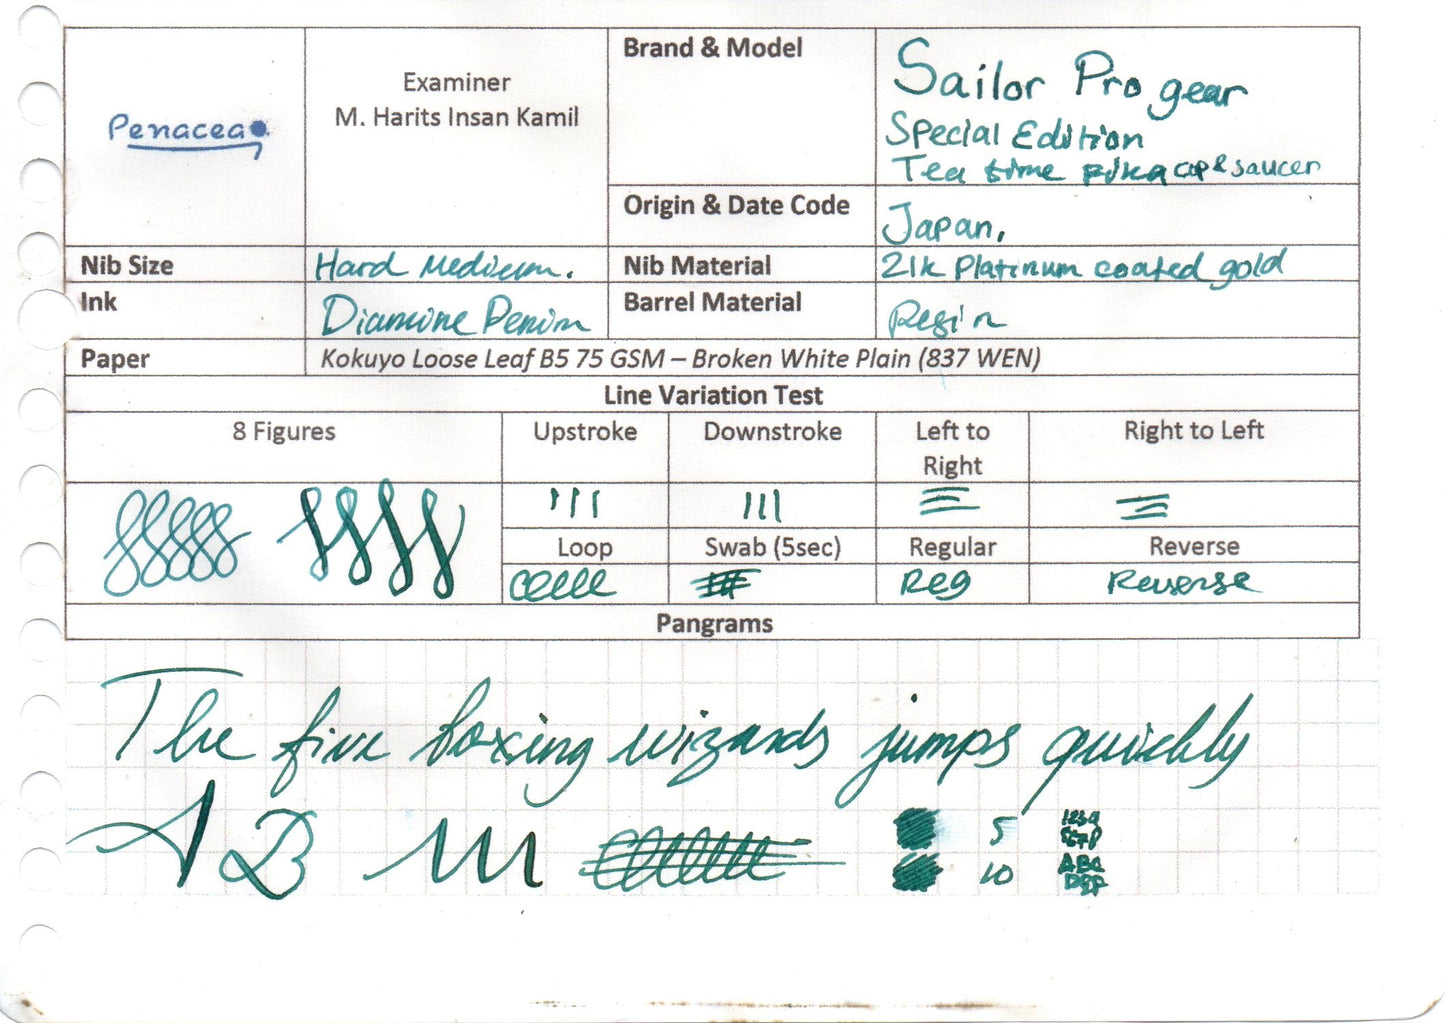 Penacea
Examiner
M. Harits Insan Kamil
Brand & Model
Sailor Pro gear
Special Edition
Tea time cup & saucer
Origin & Date Code
Japan,
Nib Size
Hard Medium.
Nib Material
21k Platinum coated gold
Ink
Diamine Denim
Barrel Material
Resin
Paper
Kokuyo Loose Leaf B5 75 GSM – Broken White Plain (837 WEN)
Line Variation Test
8 Figures
Upstroke
Downstroke
Left to
Right
Right to Left
Loop
Swab (5sec)
Regular
Reverse
Reg
Reverse
Pangrams
The five boxing wizards jumps quickly
A B m
5
1234
5678
10
ABC
DEF